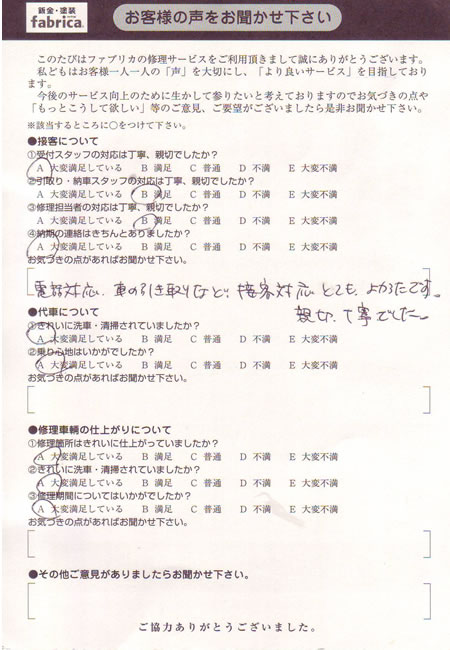 鈑金・塗装
fabrica.
お客様の声をお聞かせ下さい
このたびはファブリカの修理サービスをご利用頂きまして誠にありがとうございます。
私どもはお客様一人一人の「声」を大切にし、「より良いサービス」を目指しており
ます。
今後のサービス向上のために生かして参りたいと考えておりますのでお気づきの点や
「もっとこうして欲しい」等のご意見、ご要望がございましたら是非お聞かせ下さい。
※該当するところに○をつけて下さい。
●接客について
①受付スタッフの対応は丁寧、親切でしたか?
A 大変満足している B 満足 C 普通 D 不満 E 大変不満
②引取り・納車スタッフの対応は丁寧、親切でしたか?
A 大変満足している B 満足 C 普通 D 不満 E 大変不満
③修理担当者の対応は丁寧、親切でしたか?
A 大変満足している B 満足 C 普通 D 不満 E 大変不満
④納期の連絡はきちんとありましたか?
A 大変満足している B 満足 C 普通 D 不満 E 大変不満
お気づきの点があればお聞かせ下さい。
電話対応、車の引き取りなど、接客対応とても、よかったです。
親切、丁寧でした。
●代車について
①きれいに洗車・清掃されていましたか?
A 大変満足している B 満足 C 普通 D 不満 E 大変不満
②乗り心地はいかがでしたか?
A 大変満足している B 満足 C 普通 D 不満 E 大変不満
お気づきの点があればお聞かせ下さい。
●修理車輌の仕上がりについて
①修理箇所はきれいに仕上がっていましたか?
A 大変満足している B 満足 C 普通 D 不満 E 大変不満
②きれいに洗車・清掃されていましたか?
A 大変満足している B 満足 C 普通 D 不満 E 大変不満
③修理期間についてはいかがでしたか?
A 大変満足している B 満足 C 普通 D 不満 E 大変不満
お気づきの点があればお聞かせ下さい。
●その他ご意見がありましたらお聞かせ下さい。
ご協力ありがとうございました。